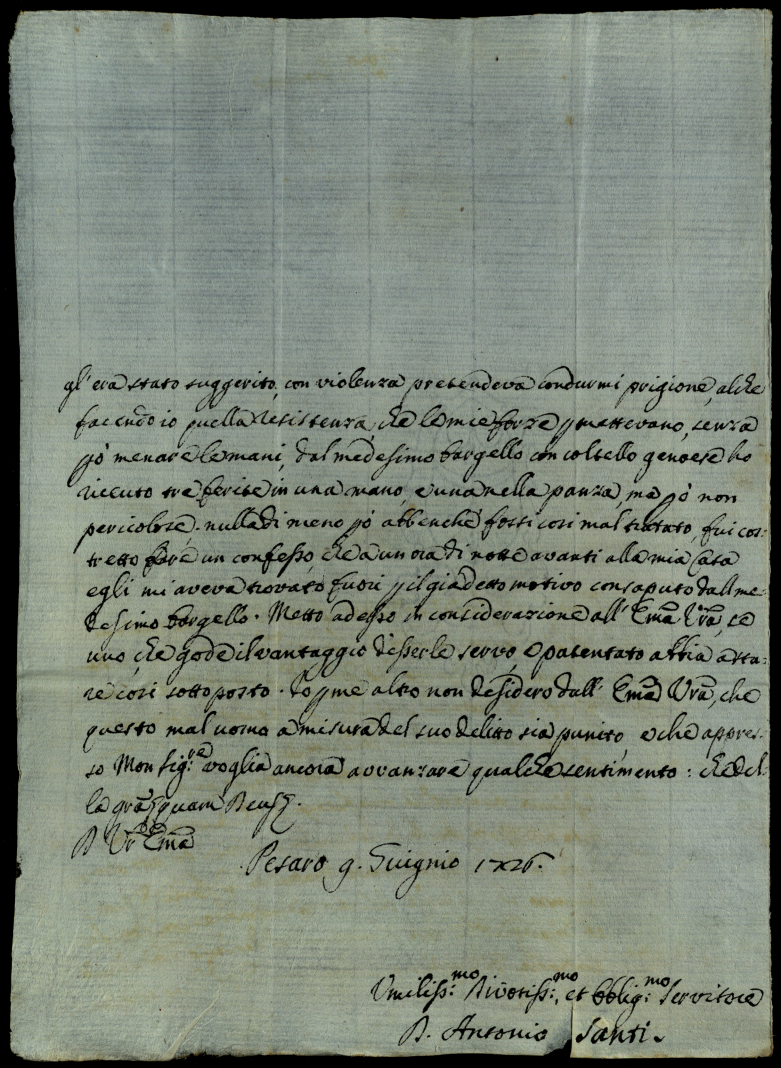 gl'era stato suggerito, con violenza pretendeva condurmi prigione, al che
facendo io quella resistenza, che le mie forze pmettevano, senza
pò menare le mani, dal medesimo bargello con coltello genoese ho
riceuto tre ferite in una mano, e una nella panza, ma pò non
pericolose. nulla di meno pò abbenche fossi così mal tratato, fui cos-
tretto fare un confesso, che a un ora di notte avanti alla mia Casa
egli mi aveva trovato fuori p il gia detto motivo consaputo dall me-
desimo bargello. Metto adesso in considerazione all' Emã Vrã, se
uno, che gode il vantaggio d'esserle servo, e patentato abbia a sta-
re così sottoposto. Io p me altro non desidero dall' Emã Vrã, che
questo mal uomo a misura del suo delitto sia punito, e che appres-
so Monsig:re voglia ancora avvanzare qualche sentimento: che del-
la grã
D Vr Emã
Pesaro 9. Giugnio 1726.
Umiliss:mo Divotiss:mo, et Obblig:mo Servitore
D. Antonio Santi.